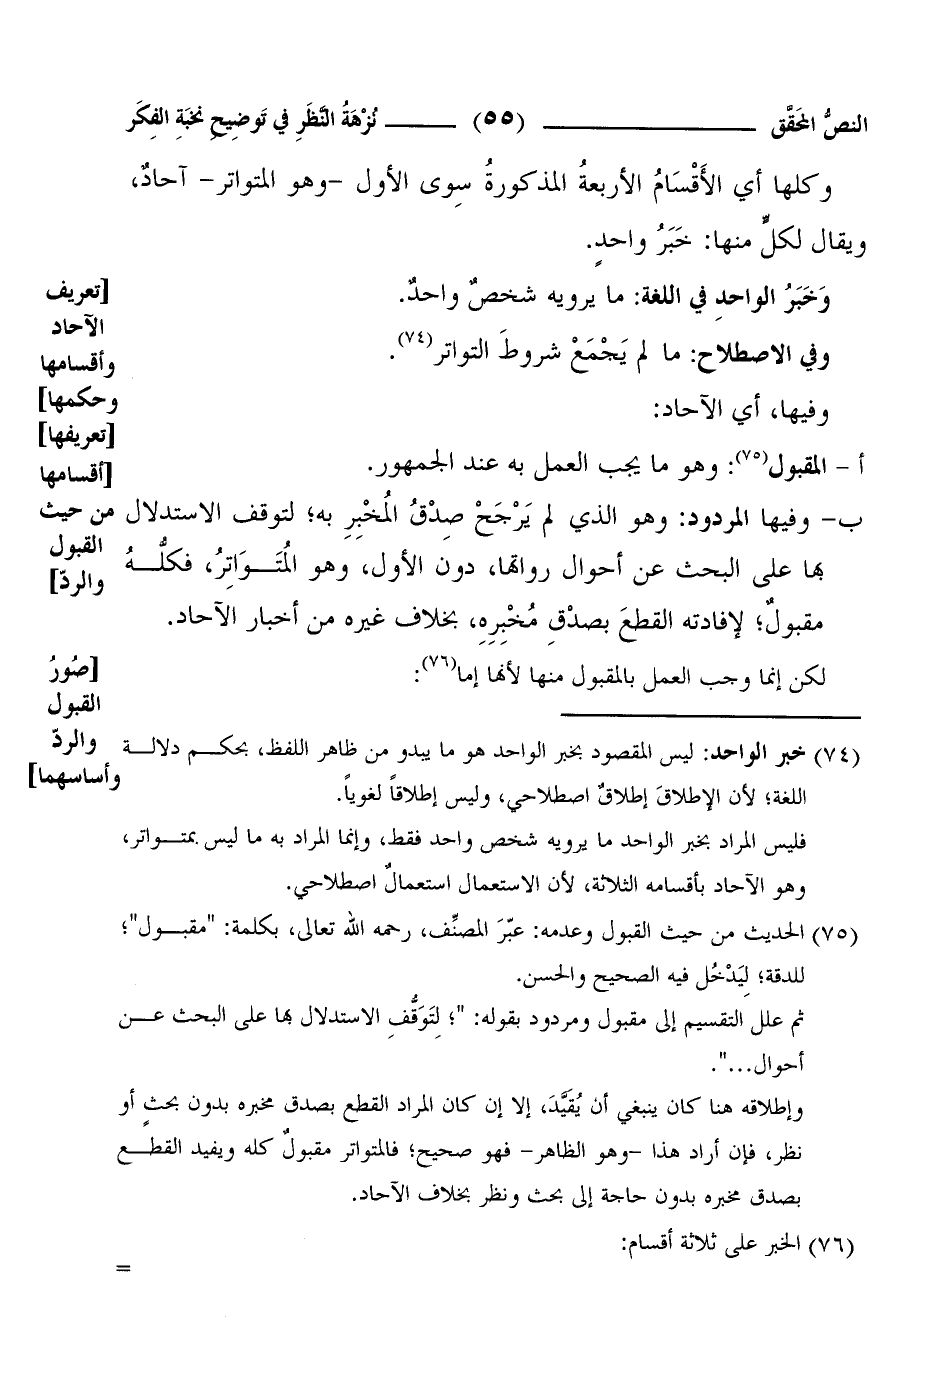 النصُّ المحَقَّق ــــــــ (٥٥) ــــــــ نُزْهَةُ النَّظَرِ في تَوضِيحِ نخبَةِ الفِكَر
وكلها أي الأَقْسَامُ الأربعةُ المذكورةُ سِوى الأول -وهو المتواتر- آحادٌ،
ويقال لكلٍّ منها: خَبَرُ واحدٍ.
وَخَبَرُ الواحدِ في اللغة: ما يرويه شخصٌ واحدٌ.
وفي الاصطلاح: ما لم يَجْمَعْ شروطَ التواتر(٧٤).
وفيها، أي الآحاد:
أ - المقبول(٧٥): وهو ما يجب العمل به عند الجمهور.
ب- وفيها المردود: وهو الذي لم يَرْجَحْ صِدْقُ المُخْبِرِ به؛ لتوقف الاستدلال
بها على البحث عن أحوال رواتها، دون الأول، وهو المُتَــواتِرُ، فكلُّهُ
مقبولٌ؛ لإفادته القطعَ بصِدْقِ مُخْبِرِهِ، بخلاف غيره من أخبار الآحاد.
لكن إنما وجب العمل بالمقبول منها لأنها إما(٧٦):
[تعريف
الآحاد
وأقسامها
وحكمها]
[تعريفها]
[أقسامها
من حيث
القبول
والردّ]
[صُوَرُ
القبول
والردّ
وأساسهما]
(٧٤) خبر الواحد: ليس المقصود بخبر الواحد هو ما يبدو من ظاهر اللفظ، بحكـم دلالـة
اللغة؛ لأن الإطلاقَ إطلاقٌ اصطلاحي، وليس إطلاقاً لغوياً.
فليس المراد بخبر الواحد ما يرويه شخص واحد فقط، وإنما المراد به ما ليس بمتـواتر،
وهو الآحاد بأقسامه الثلاثة، لأن الاستعمال استعمالٌ اصطلاحي.
(٧٥) الحديث من حيث القبول وعدمه: عبّرَ المصنِّف، رحمه الله تعالى، بكلمة: "مقبـول"؛
للدقة؛ لِيَدْخُل فيه الصحيح والحسن.
ثم علل التقسيم إلى مقبول ومردود بقوله: "؛ لِتَوَقُّفِ الاستدلال بها على البحث عــن
أحوال...".
وإطلاقه هنا كان ينبغي أن يُقَيَّدَ، إلا إن كان المراد القطع بصدق مخبره بدون بحثٍ أو
نظر، فإن أراد هذا -وهو الظاهر- فهو صحيح؛ فالمتواتر مقبولٌ كله ويفيد القطــع
بصدق مخبره بدون حاجة إلى بحث ونظر بخلاف الآحاد.
(٧٦) الخبر على ثلاثة أقسام:
=